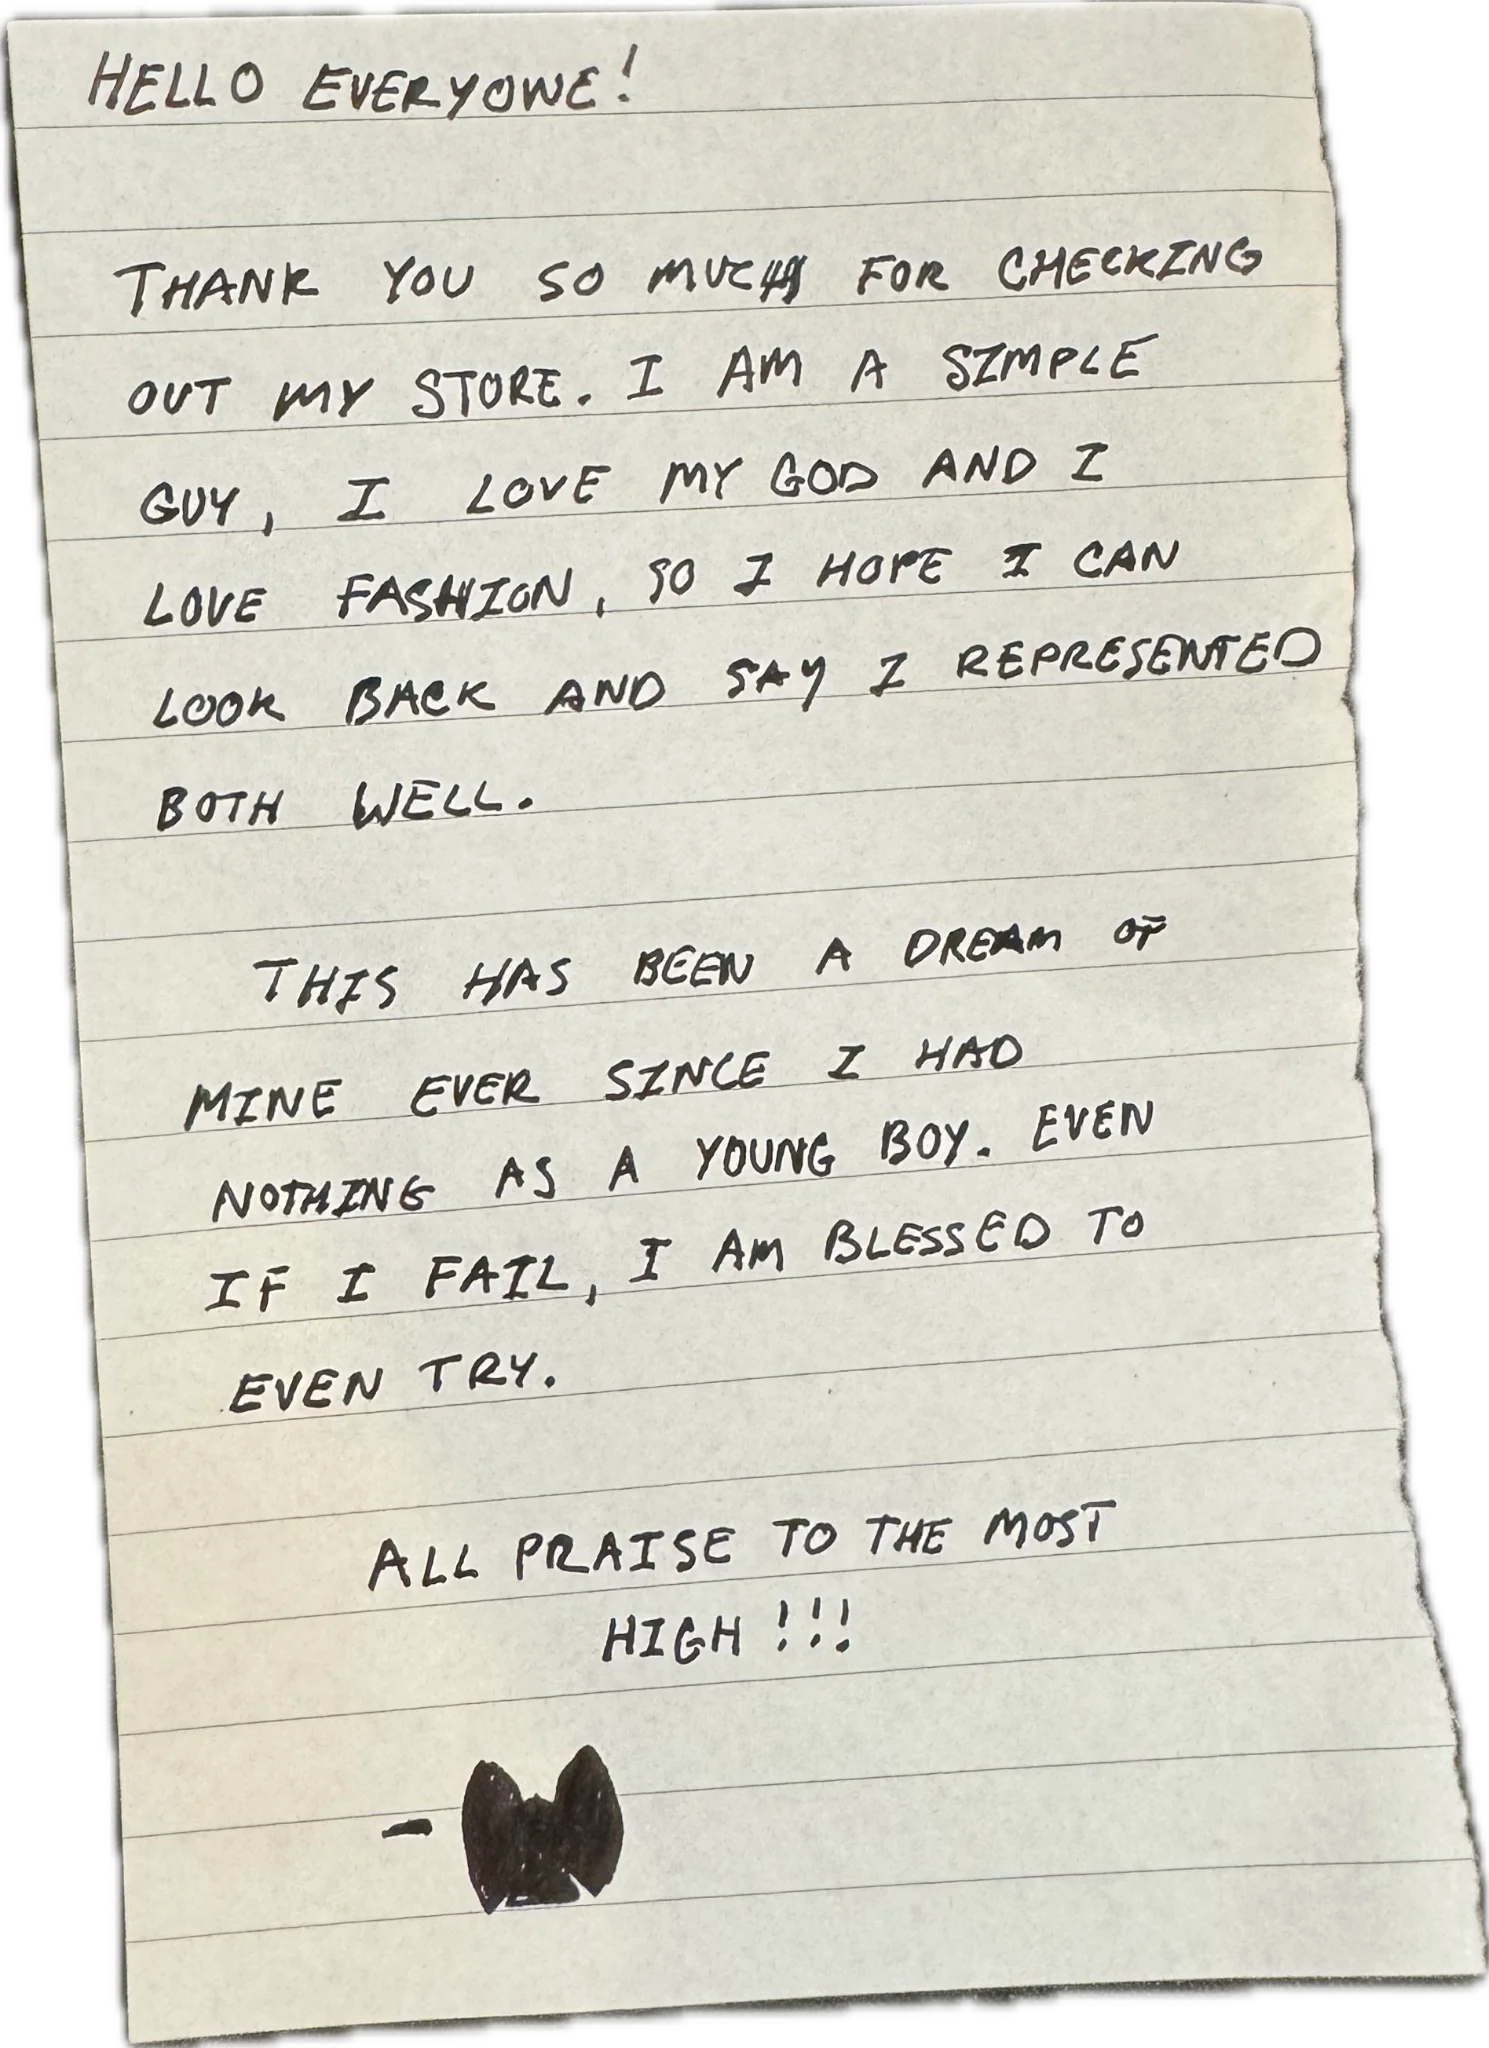 HELLO EVERYONE!
THANK YOU SO MUCH FOR CHECKING
OUT MY STORE. I AM A SIMPLE
GUY, I LOVE MY GOD AND I
LOVE FASHION, SO I HOPE I CAN
LOOK BACK AND SAY I REPRESENTED
BOTH WELL.
THIS HAS BEEN A DREAM OF
MINE EVER SINCE I HAD
NOTHING AS A YOUNG BOY. EVEN
IF I FAIL, I AM BLESSED TO
EVEN TRY.
ALL PRAISE TO THE MOST
HIGH!!!
-